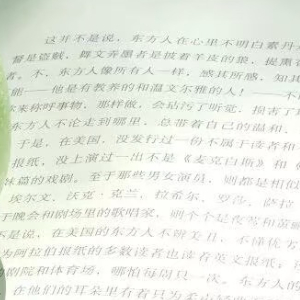 这并不是说，东方人在心里不明白素丹
督是盗贼，舞文弄墨者是披着羊皮的狼，提篇
者。不，东方人像所有人一样，感其所感，知其
丽——他是有教养的和温文尔雅的人！——不
来称呼事物，那样做，会玷污了听觉，损害了
东方人不论走到那里，总带着自己的温和、
于是，在美国，没发行过一份不属于读者和
报纸，没上演过一出不是《麦克白斯》和《
妹篇的戏剧。至于那些男女演员，则都是相似
埃尔文、沃克·克兰、拉希尔、罗莎、萨拉
于晚会和剧场里的歌唱家，则个个是夜莺和
不是说，在美国的东方人不听美丑，不辨优劣
为阿拉伯报纸的多数读者也读着英文报纸；
剧院和体育场，哪怕每周只一次。东方人的
在他们的耳朵里有着只为柔